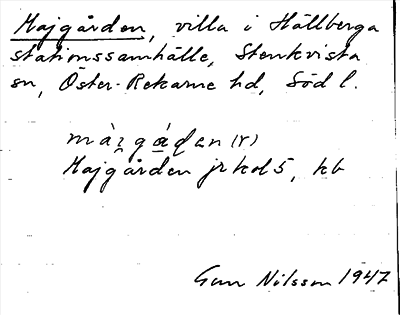 Majgården, villa i Hällberga
stationssamhälle, Stenkvista
sn, Öster-Rekarne hd, Söd l.
màɪ̯gá̱ɖan (r)
Majgården jrkol 5, kb
Gun Nilsson 1947